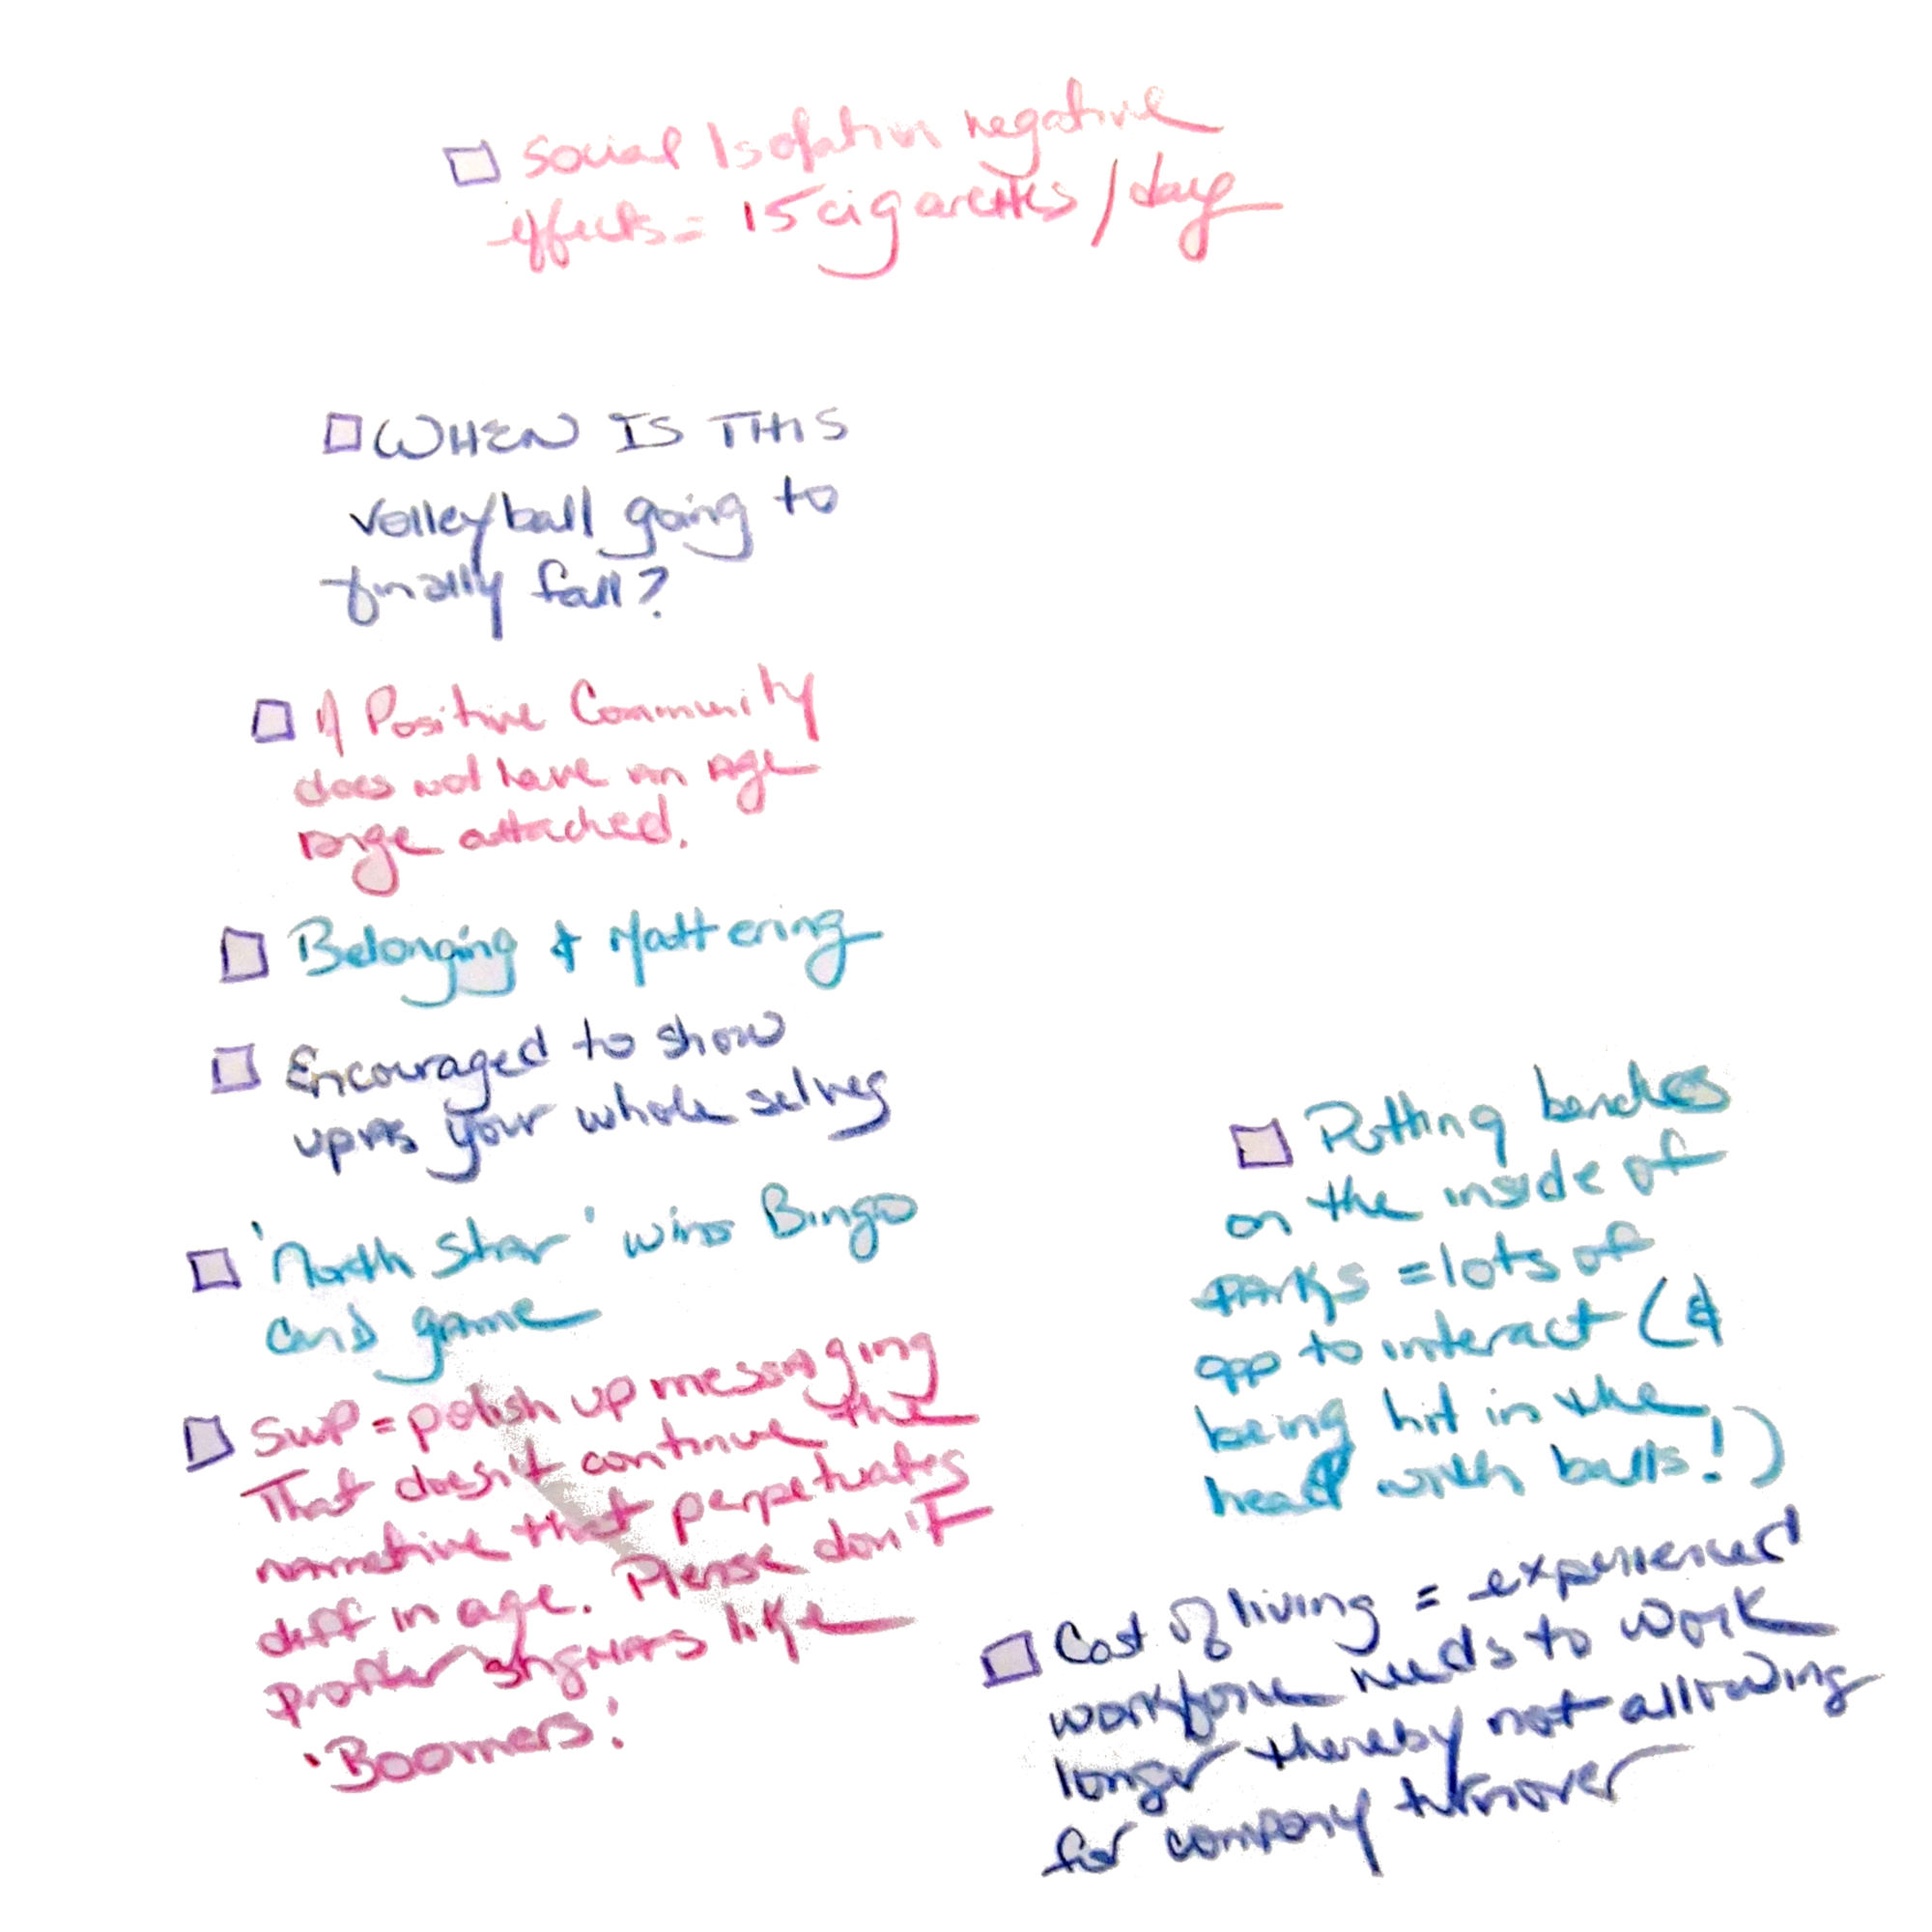 Social Isolation negative
effects = 15 cigarettes / day
WHEN IS THIS
volleyball going to
finally fall?
A Positive Community
does not have an age
range attached.
Belonging & Mattering
Encouraged to show
up as your whole selves
'North Star' wins Bingo
card game
SWP = polish up messaging
That doesn't continue the
narrative that perpetuates
diff in age. Please don't
proffer stigmas like
'Boomers'.
Putting benches
on the inside of
parks = lots of
opp to interact (&
being hit in the
head with balls!)
Cost of living = experienced
workforce needs to work
longer thereby not allowing
for company turnover